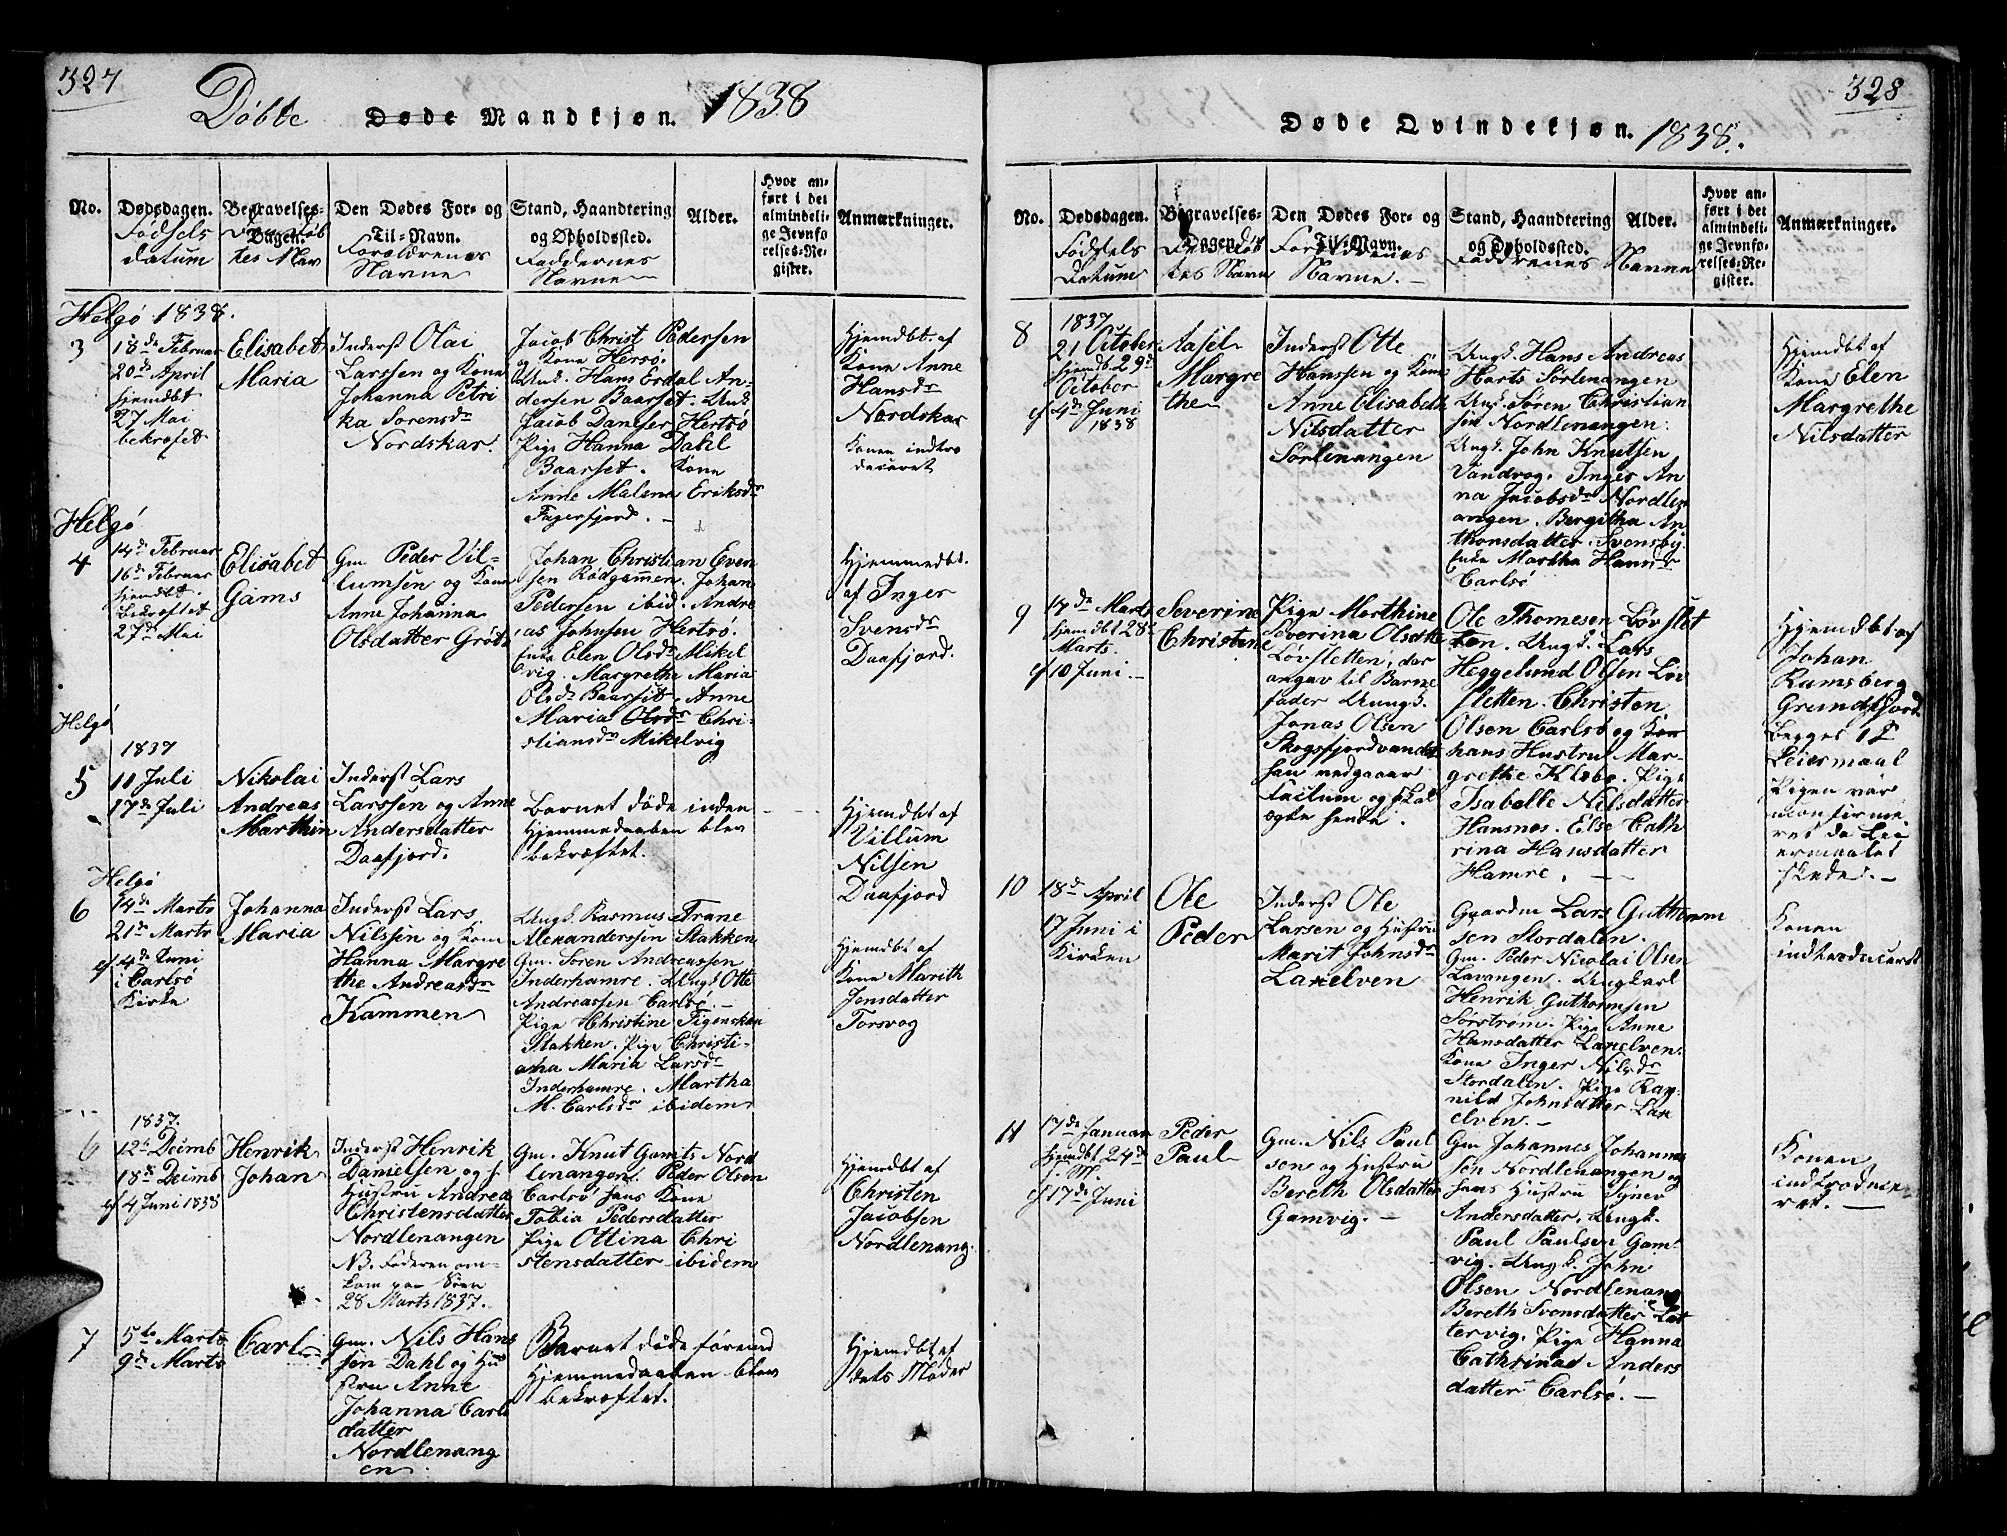 327
Döbte Døde Mandkjøn. 1838
No.
Dødsdagen.
Födsels
datum
Begravelses-
Dagen.
Den Dødes For- og
Til-Navn.
Forældrenes
Navne
Stand, Haandtering
og Opholdssted.
Faddernes
Navne
Alder.
Hvor an-
ført i det
almindeli-
ge Jevnfø
relses-Re-
gister.
Anmærkninger.
Helgö 1838.
3
18de Februar
20de April
Hjemdbt
27 Mai
bekræftet
Elisabet
Maria
Inderst Olai
Larssen og Kone
Johanna Petri
ka Sörensdr
Nordskar.
Jacob Christ Pedersen
og Kone Hersö.
Ung. Hans Erdal An-
dersen Baarset. Ung
Jacob Danielsen Hertsö
Pige Hanna Dahl
Baarset. Kone
Anne Malena Eriksdr
Fagerfjord.
Hjemdbt. af
Kone Anne
Hansdr
Nordskar
Konen indtro
duceret
Helgö
4
14de Februar
16de Februar
Hjemdbt.
Bekræftet
27de Mai
Elisabet
Gams
Gm Peder Vil-
lumsen og Kone
Anne Johanna
Olsdatter Gröt
Johan Christian Even
sen Rödgammen. Johan
Pedersen ibid. Andre
as Johnsen Hertsö.
Enke Elen Olsdr Mikel
vig. Margrethe Maria
Olsdr Baarset. Anne
Maria Olsdr Chri-
stiansdr Mikelvig
Hjemmedbt.
af Inger
Svensdr
Daafjord.
Helgö
1837
5
11 Juli
17de Juli
Nikolai
Andreas
Marthin
Inderst Lars
Larssen og Anne
Andersdatter
Daafjord.
Barnet döde inden
Hjemmedaaben blev
bekræftet.
Hjemdbt af
Villum
Nilsen
Daafjord
Helgö
6
14de Marts
21de Marts
cf 4de Juni
i Carlsö
Kirke
Johanna
Maria
Inderst Lars
Nilssen og Kone
Hanna Margre
the Andreasdr
Kammen
Ungk. Rasmus Trane
Alexanderssen Stakken
Gm. Sören Andreassen
Inderhamre. Ungk Otte
Andreassen Carlsö.
Pige Christine Figenskau
Stakken. Pige Christi-
ana Maria Larsdr
Inderhamre. Martha
M. Carlsdr ibidem
Hjemdbt af
Kone Marith
Jensdatter
Torsvog
1837.
6
12te Decmb
18de Decmb
cf 4 Juni 1838
Henrik
Johan
Inderst Henrik
Danielsen og
Hustru Andrea
Christensdatter
Nordlenangen
NB. Faderen om-
kom paa Söen
28 Marts 1837.
Gm. Knut Gamts Nord
lenangen. Peder Olsen
Carlsö hans Kone
Tobia Pedersdatter
Pige Ottina Chri
stensdatter ibidem
Hjemdbt af
Christen
Jacobsen
Nordlenang.
7
5te Marts
9de Marts
Carl
Gm. Nils Hans
sen Dahl og Hu
stru Anne
Johanna Carls
datter
Nordlenang
en
Barnet döde förend
Hjemmedaaben blev
bekræftet.
Hjemdbt af
dets Moder
328
Døde Qvindekjøn. 1838.
No.
Dødsdagen.
Födsels
Datum
Begravelses-
Dagen.
Den Dødes For- og
Til-Navn.
Forældrenes
Navne.
Stand, Haandtering
og Opholdssted.
Faddrenes
Alder.
Navne
Hvor an-
ført i det
almindeli-
ge Jevnfø-
relses-Re-
gister.
Anmærkninger.
8
1837
21 October
Hjemdbt 29de
October
cf 4de Juni
1838
Aasel
Margre
the
Inderst Otte
Hanssen og Kone
Anne Elisabeth
Nilsdatter
Sörlenangen
Ungk. Hans Andreas
Harts Sörlenangen
Ungk. Sören Christian
sen Nordlenangen.
Ungk. John Knutsen
Vandvog. Inger An
na Jacobsdr Nordlen
angen. Bergitha An
thonsdatter. Svensby
Enke Martha Hansdr
Carlsö
Hjemdbt af
Kone Elen
Margrethe
Nilsdatter
9
17de Marts
Hjemdbt 28de
Marts.
cf 10 Juni
Severine
Christine
Pige Marthine
Severina Olsdtte
Lövsletten, der
angav til Barne
fader Ungk.
Jonas Olsen
Skogsfjordvandet
han vedgaaer
Factum og skal
ægte hende.
Ole Thomesen Lövslet
ten. Ungk. Lars
Heggelund Olsen Löv
sletten. Christen
Olsen Carlsö og Kon
hans Hustru Mar-
grethe Klebo. Pige
Isabelle Nilsdatter
Hansnes. Else Cath
rina Hansdatter
Hamre.
Hjemdbt af
Johan
Ramsberg
Grundfjord.
Begges 1ste
Leiermaal
Pigen var
confirme
ret da Lei
ermaalet
skede.
10
18de April
17 Juni i
Kirken
Ole
Peder
Inderst Ole
Larsen og Hustru
Marit Johnsdr
Laxelven
Gaardm Lars Guttormm
sen Stordalen.
Gm. Peder Nicolai Olsen
Lavangen. Ungkarl
Henrik Guthormsen
Sörström. Pige Anne
Hansdatter Laxelven.
Kone Inger Nilsdr
Stordalen. Pige Rag-
nild Johnsdatter Lax
elven.
Konen
indtroduceret
11
17de Januar
Hjemdbt 24de
s. M.
cf 17de Juni
Peder
Paul
Gm. Nils Paul
sen og Hustru
Bereth Olsdatter
Gamvig.
Gm Johannes Johannes
sen Nordlenangen og
hans Hustru Synev
Andersdatter. Ungk.
Paul Paulsen Gam-
vig. Ungk. John
Olsen Nordlenang
Bereth Svensdatter Lat
tervig. Pige Hanna
Cathrinae Anders
datter Carlsö.
Konen
indtroduce-
ret.